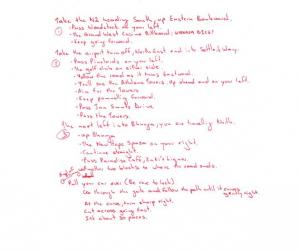 Take the N2 heading South, up Eastern Boulevard.
- Pass Woodstock on your left.
① - The Grand West Casino Billboard: WANNA DICE!
- Keep going forward.
Take the airport turn off, North East and into Settlers Way.
② - Pass Pinelands on your left.
- The golf club on either side.
- Follow the road as it turns
- You'll see the Athlone Towers. Up ahead and on your left.
- Aim for the Towers
- Keep pummeling forward.
- Pass Jan Smuts Drive
- Pass the Towers.
next left into Bhunga, you are travelling North.
③ - Up Bhunga
- The New Hope Spaza on your right.
- Continue straight.
- Pass Paradise Café,
another two blocks to where the road ends.
④ Pull your car over (Be sure to lock)
Go through the gate and follow the path until it curves
gently right.
At the curve, turn sharp right.
Cut across going East.
Ink about 50 paces.